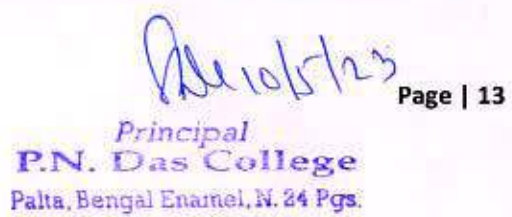 10/5/23
Page | 13
Principal
P.N. Das College
Palta, Bengal Enamel, N. 24 Pgs.